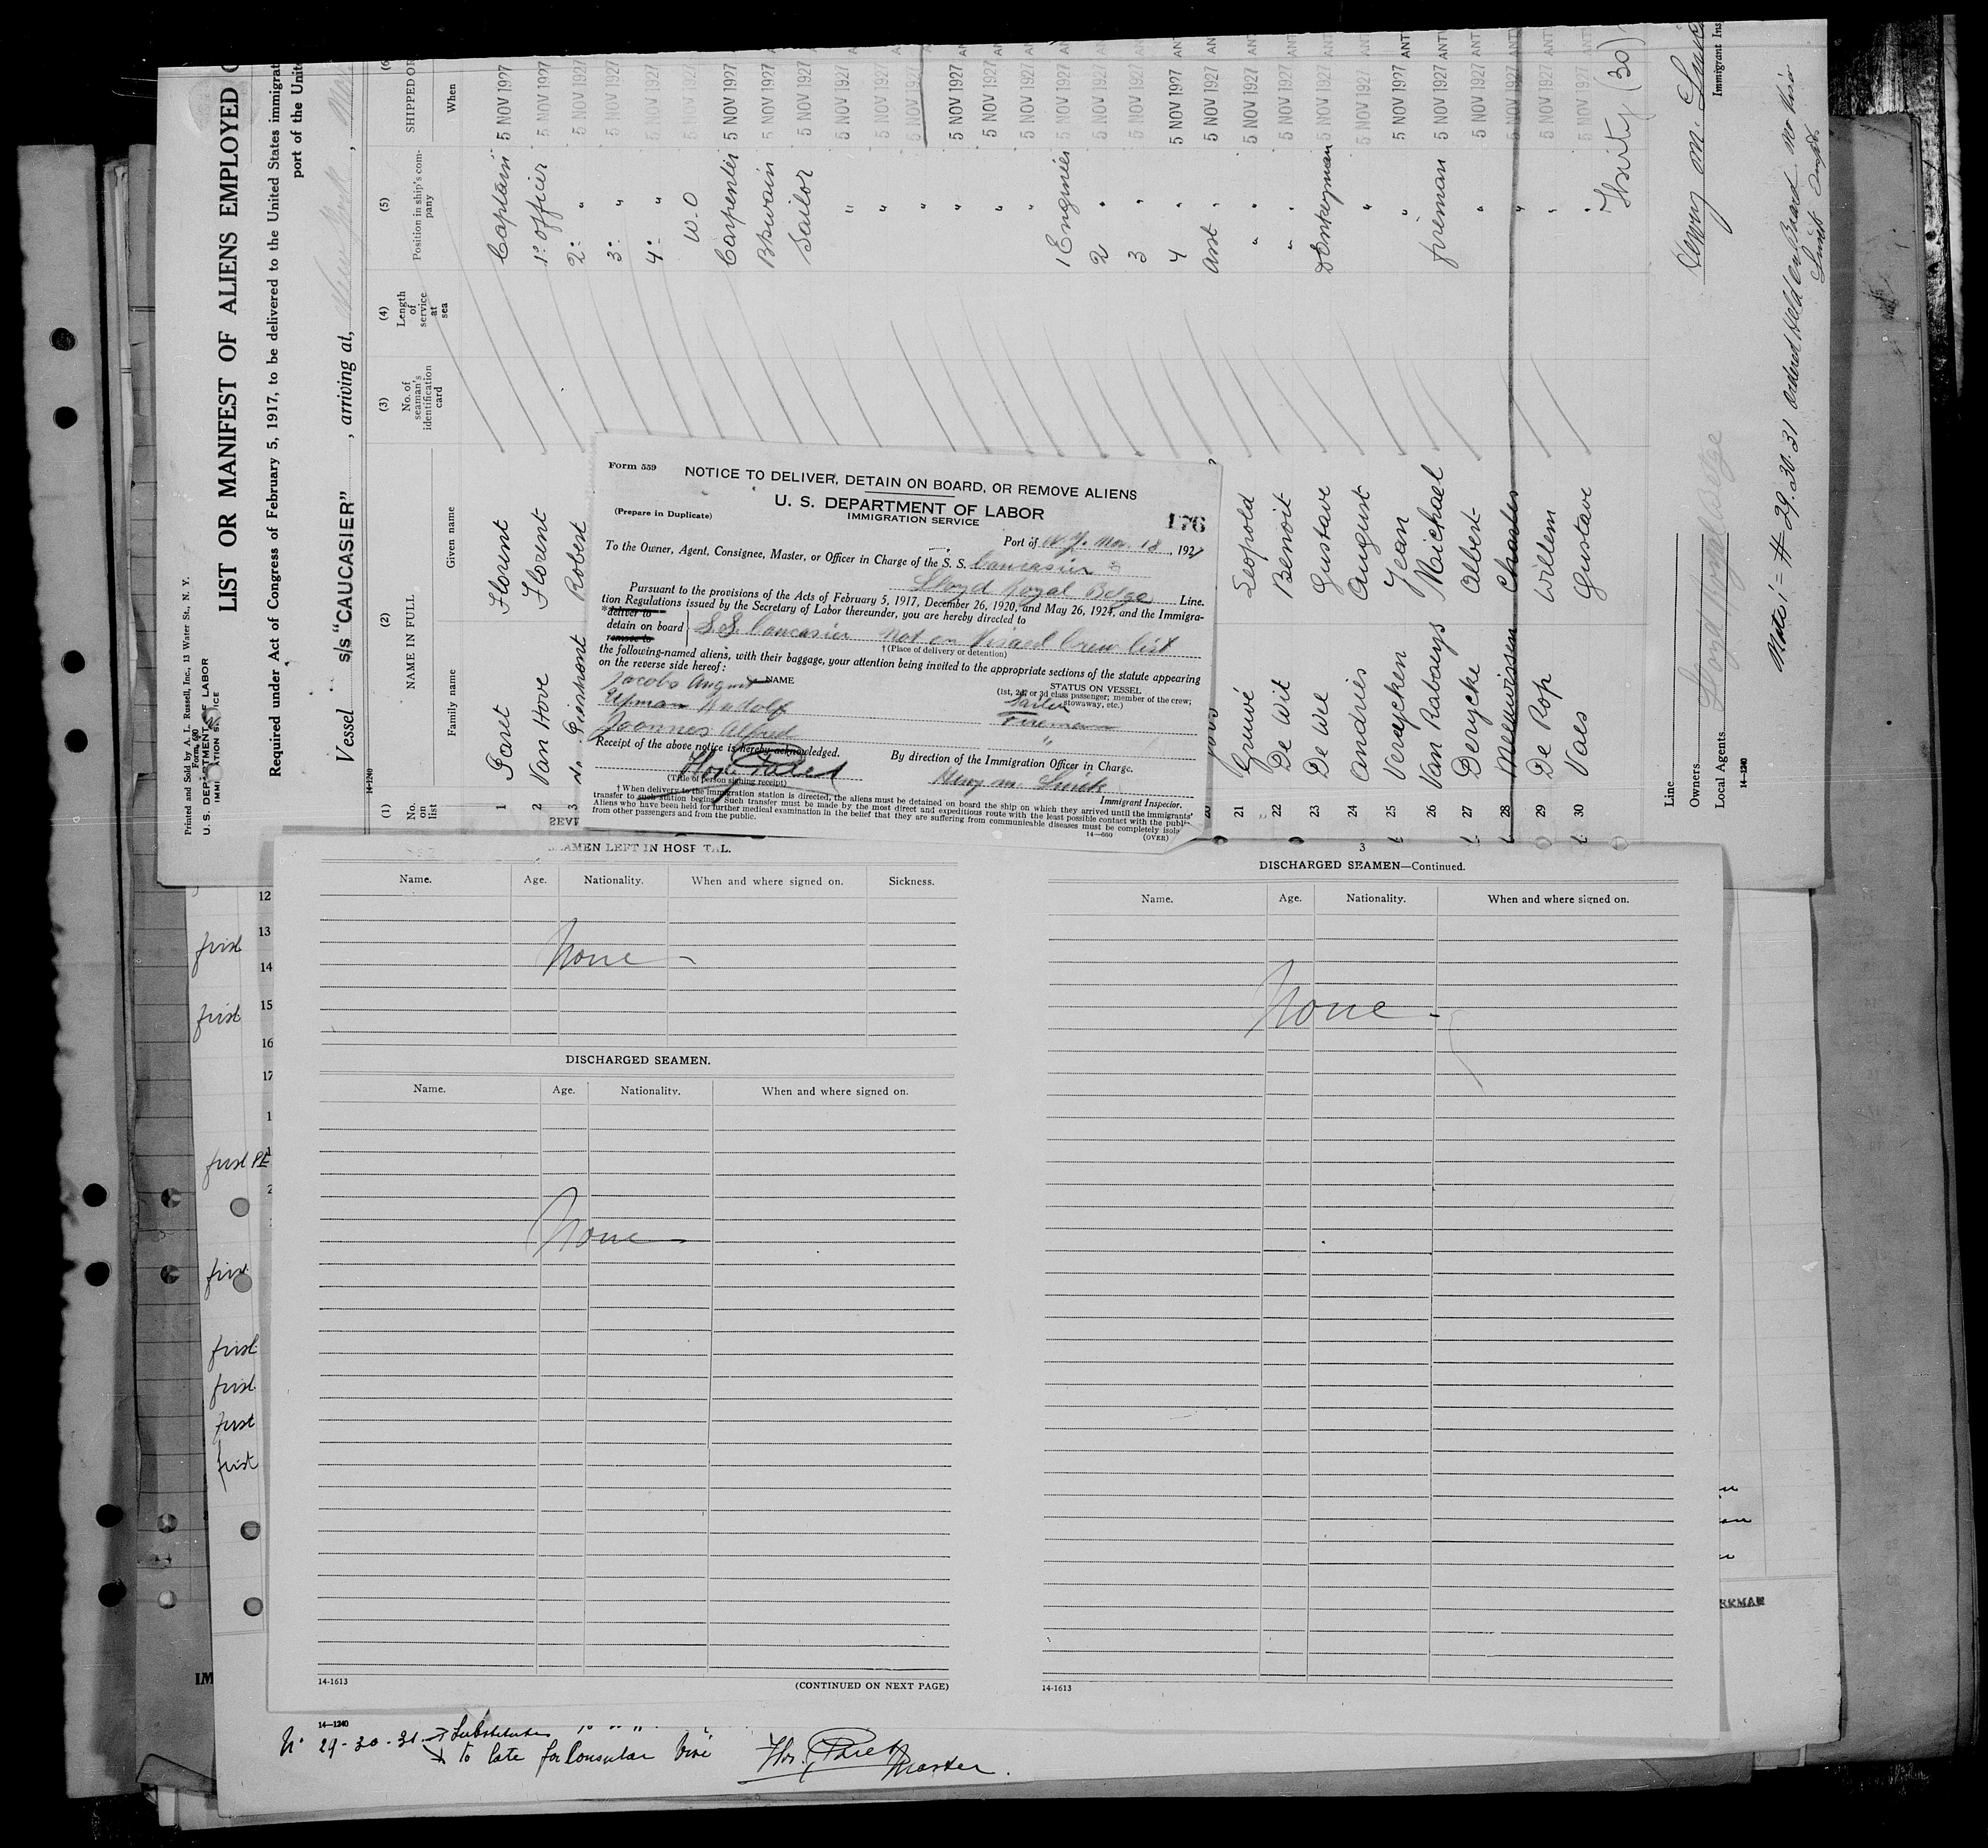 Printed and Sold by A. L. Russell, Inc., 13 Water St., N. Y.
Form 680
U. S. DEPARTMENT OF LABOR
IMMIGRATION SERVICE
LIST OR MANIFEST OF ALIENS EMPLOYED
Required under Act of Congress of February 5, 1917, to be delivered to the United States immigrat
port of the Unite
Vessel s/s "CAUCASIER", arriving at, New York,
14-1240
(1) (2) (3) (4) (5) (6
No. on list
NAME IN FULL
Family name Given name
No. of seaman's identification card
Length of service at sea
Position in ship's company
SHIPPED OR
When
1 Paret Florent Captain 5 NOV 1927
2 Van Hove Florent 1° officer 5 NOV 1927
3 Robert 2° " 5 NOV 1927
3° " 5 NOV 1927
4° " 5 NOV 1927
W.O 5 NOV 1927
Carpenter 5 NOV 1927
Boswain 5 NOV 1927
Sailor 5 NOV 1927
" 5 NOV 1927
" 5 NOV 1927
" 5 NOV 1927
" 5 NOV 1927
" 5 NOV 1927
" 5 NOV 1927
1 Engineer 5 NOV 1927
2 " 5 NOV 1927
3 " 5 NOV 1927
4 " 5 NOV 1927
Asst " 5 NOV 1927
21 Gruwé Leopold " " 5 NOV 1927
22 De Wit Benoit " " 5 NOV 1927
23 De Wee Gustave Donkeyman 5 NOV 1927
24 Andries August " 5 NOV 1927
25 Vereycken Jean " 5 NOV 1927
26 Van Rabaeys Michael fireman 5 NOV 1927
27 Derycke Albert " 5 NOV 1927
28 Meeuwissen Charles " 5 NOV 1927
29 De Rop Willem " 5 NOV 1927
30 Vaes Gustave " 5 NOV 1927
Thirty (30)
Line
Owners
Local Agents Lloyd Royal Belge
14-1240
Henry M. Smick
Immigrant Ins
Note:- # 29. 30. 31 ordered held on Board no visa
Form 559
NOTICE TO DELIVER, DETAIN ON BOARD, OR REMOVE ALIENS
U. S. DEPARTMENT OF LABOR
IMMIGRATION SERVICE
(Prepare in Duplicate)
176
Port of N.Y. Nov. 18, 1927
To the Owner, Agent, Consignee, Master, or Officer in Charge of the S. S. Caucasier
Lloyd Royal Belge Line.
Pursuant to the provisions of the Acts of February 5, 1917, December 26, 1920, and May 26, 1924, and the Immigra-
tion Regulations issued by the Secretary of Labor thereunder, you are hereby directed to
*deliver to
detain on board S.S. Caucasier not on Visaed Crew list
remove to
† (Place of delivery or detention)
the following-named aliens, with their baggage, your attention being invited to the appropriate sections of the statute appearing
on the reverse side hereof:
NAME
STATUS ON VESSEL
(1st, 2d, or 3d class passenger; member of the crew; stowaway, etc.)
Jacobs August Sailor
Rudolf Fireman
Joannes Alfred "
Receipt of the above notice is hereby acknowledged.
By direction of the Immigration Officer in Charge.
(Title of person signing receipt)
Henry M. Smick
Immigrant Inspector.
† When delivery to the immigration station is directed, the aliens must be detained on board the ship on which they arrived until the immigrants'
transfer to such station begins. Such transfer must be made by the most direct and expeditious route with the least possible contact with the public.
Aliens who have been held for further medical examination in the belief that they are suffering from communicable diseases must be completely isola
from other passengers and from the public.
14-660
(OVER)
SEAMEN LEFT IN HOSPITAL.
Name. Age. Nationality. When and where signed on. Sickness.
None
DISCHARGED SEAMEN.
Name. Age. Nationality. When and where signed on.
None
14-1613
(CONTINUED ON NEXT PAGE)
3
DISCHARGED SEAMEN—Continued.
Name. Age. Nationality. When and where signed on.
None
14-1613
12
13
14
15
16
17
first
first
first
first
first
first
first
first
ERMAN
IM
14-1240
N° 29-30-31 Substitutes
to late for Consular Visé
Master